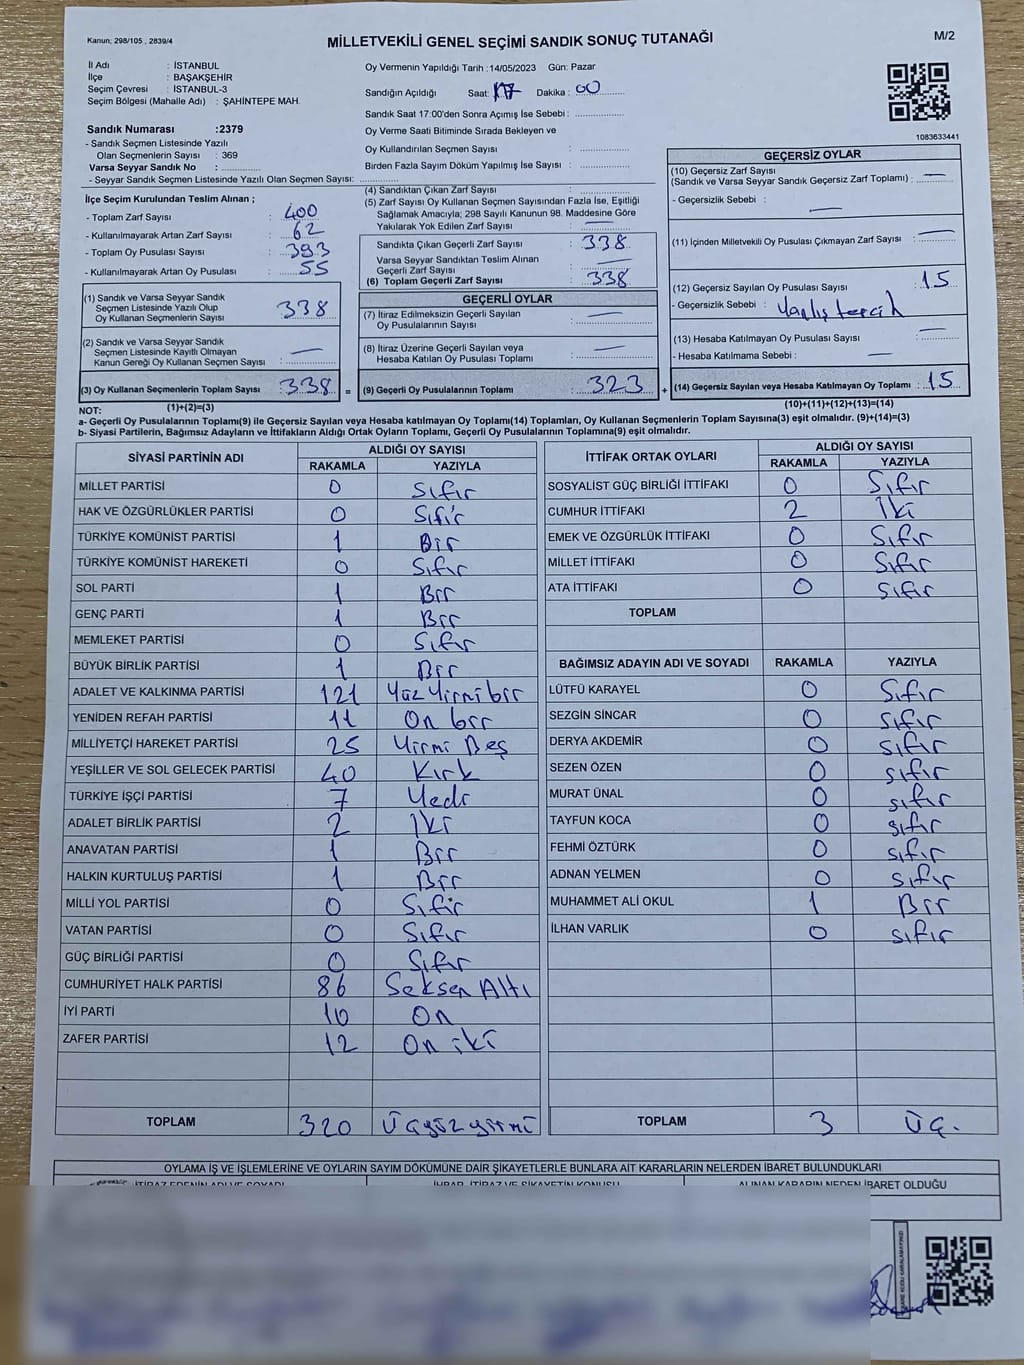 Kanun; 298/105 , 2839/4
MİLLETVEKİLİ GENEL SEÇİMİ SANDIK SONUÇ TUTANAĞI
M/2
İl Adı : İSTANBUL
İlçe : BAŞAKŞEHİR
Seçim Çevresi : İSTANBUL-3
Seçim Bölgesi (Mahalle Adı) : ŞAHİNTEPE MAH.
Sandık Numarası :2379
- Sandık Seçmen Listesinde Yazılı
Olan Seçmenlerin Sayısı : 369
Varsa Seyyar Sandık No :
- Seyyar Sandık Seçmen Listesinde Yazılı Olan Seçmen Sayısı:
Oy Vermenin Yapıldığı Tarih :14/05/2023 Gün: Pazar
Sandığın Açıldığı Saat: 17 Dakika : 00
Sandık Saat 17:00'den Sonra Açımış İse Sebebi :
Oy Verme Saati Bitiminde Sırada Bekleyen ve
Oy Kullandırılan Seçmen Sayısı :
Birden Fazla Sayım Döküm Yapılmış İse Sayısı :
1083633441
İlçe Seçim Kurulundan Teslim Alınan ;
- Toplam Zarf Sayısı : 400
- Kullanılmayarak Artan Zarf Sayısı : 62
- Toplam Oy Pusulası Sayısı : 393
- Kullanılmayarak Artan Oy Pusulası : 55
(1) Sandık ve Varsa Seyyar Sandık
Seçmen Listesinde Yazılı Olup
Oy Kullanan Seçmenlerin Sayısı : 338
(2) Sandık ve Varsa Seyyar Sandık
Seçmen Listesinde Kayıtlı Olmayan
Kanun Gereği Oy Kullanan Seçmen Sayısı : —
(3) Oy Kullanan Seçmenlerin Toplam Sayısı : 338 =
(1)+(2)=(3)
(4) Sandıktan Çıkan Zarf Sayısı :
(5) Zarf Sayısı Oy Kullanan Seçmen Sayısından Fazla İse, Eşitliği
Sağlamak Amacıyla; 298 Sayılı Kanunun 98. Maddesine Göre
Yakılarak Yok Edilen Zarf Sayısı : —
Sandıkta Çıkan Geçerli Zarf Sayısı : 338
Varsa Seyyar Sandıktan Teslim Alınan
Geçerli Zarf Sayısı : —
(6) Toplam Geçerli Zarf Sayısı : 338
GEÇERLİ OYLAR
(7) İtiraz Edilmeksizin Geçerli Sayılan
Oy Pusulalarının Sayısı : —
(8) İtiraz Üzerine Geçerli Sayılan veya
Hesaba Katılan Oy Pusulası Toplamı : —
(9) Geçerli Oy Pusulalarının Toplamı : 323 +
GEÇERSİZ OYLAR
(10) Geçersiz Zarf Sayısı
(Sandık ve Varsa Seyyar Sandık Geçersiz Zarf Toplamı) : —
- Geçersizlik Sebebi : —
(11) İçinden Milletvekili Oy Pusulası Çıkmayan Zarf Sayısı : —
(12) Geçersiz Sayılan Oy Pusulası Sayısı : 15
- Geçersizlik Sebebi : Yanlış tercih
(13) Hesaba Katılmayan Oy Pusulası Sayısı : —
- Hesaba Katılmama Sebebi : —
(14) Geçersiz Sayılan veya Hesaba Katılmayan Oy Toplamı : 15
(10)+(11)+(12)+(13)=(14)
NOT:
a- Geçerli Oy Pusulalarının Toplamı(9) ile Geçersiz Sayılan veya Hesaba katılmayan Oy Toplamı(14) Toplamları, Oy Kullanan Seçmenlerin Toplam Sayısına(3) eşit olmalıdır. (9)+(14)=(3)
b- Siyasi Partilerin, Bağımsız Adayların ve İttifakların Aldığı Ortak Oyların Toplamı, Geçerli Oy Pusulalarının Toplamına(9) eşit olmalıdır.
SİYASİ PARTİNİN ADI ALDIĞI OY SAYISI
RAKAMLA YAZIYLA
MİLLET PARTİSİ 0 Sıfır
HAK VE ÖZGÜRLÜKLER PARTİSİ 0 Sıfır
TÜRKİYE KOMÜNİST PARTİSİ 1 Bir
TÜRKİYE KOMÜNİST HAREKETİ 0 Sıfır
SOL PARTİ 1 Bir
GENÇ PARTİ 1 Bir
MEMLEKET PARTİSİ 0 Sıfır
BÜYÜK BİRLİK PARTİSİ 1 Bir
ADALET VE KALKINMA PARTİSİ 121 Yüz Yirmi bir
YENİDEN REFAH PARTİSİ 11 On bir
MİLLİYETÇİ HAREKET PARTİSİ 25 Yirmi Beş
YEŞİLLER VE SOL GELECEK PARTİSİ 40 Kırk
TÜRKİYE İŞÇİ PARTİSİ 7 Yedi
ADALET BİRLİK PARTİSİ 2 İki
ANAVATAN PARTİSİ 1 Bir
HALKIN KURTULUŞ PARTİSİ 1 Bir
MİLLİ YOL PARTİSİ 0 Sıfır
VATAN PARTİSİ 0 Sıfır
GÜÇ BİRLİĞİ PARTİSİ 0 Sıfır
CUMHURİYET HALK PARTİSİ 86 Seksen Altı
İYİ PARTİ 10 On
ZAFER PARTİSİ 12 On iki
TOPLAM 320 Üçyüz yirmi
İTTİFAK ORTAK OYLARI ALDIĞI OY SAYISI
RAKAMLA YAZIYLA
SOSYALİST GÜÇ BİRLİĞİ İTTİFAKI 0 Sıfır
CUMHUR İTTİFAKI 2 İki
EMEK VE ÖZGÜRLÜK İTTİFAKI 0 Sıfır
MİLLET İTTİFAKI 0 Sıfır
ATA İTTİFAKI 0 Sıfır
TOPLAM
BAĞIMSIZ ADAYIN ADI VE SOYADI RAKAMLA YAZIYLA
LÜTFÜ KARAYEL 0 Sıfır
SEZGİN SİNCAR 0 sıfır
DERYA AKDEMİR 0 sıfır
SEZEN ÖZEN 0 sıfır
MURAT ÜNAL 0 sıfır
TAYFUN KOCA 0 sıfır
FEHMİ ÖZTÜRK 0 sıfır
ADNAN YELMEN 0 sıfır
MUHAMMET ALİ OKUL 1 Bir
İLHAN VARLIK 0 sıfır
TOPLAM 3 Üç.
OYLAMA İŞ VE İŞLEMLERİNE VE OYLARIN SAYIM DÖKÜMÜNE DAİR ŞİKAYETLERLE BUNLARA AİT KARARLARIN NELERDEN İBARET BULUNDUKLARI
İTİRAZ EDENİN ADI VE SOYADI İHBAR, İTİRAZ VE ŞİKAYETİN KONUSU ALINAN KARARIN NEDEN İBARET OLDUĞU